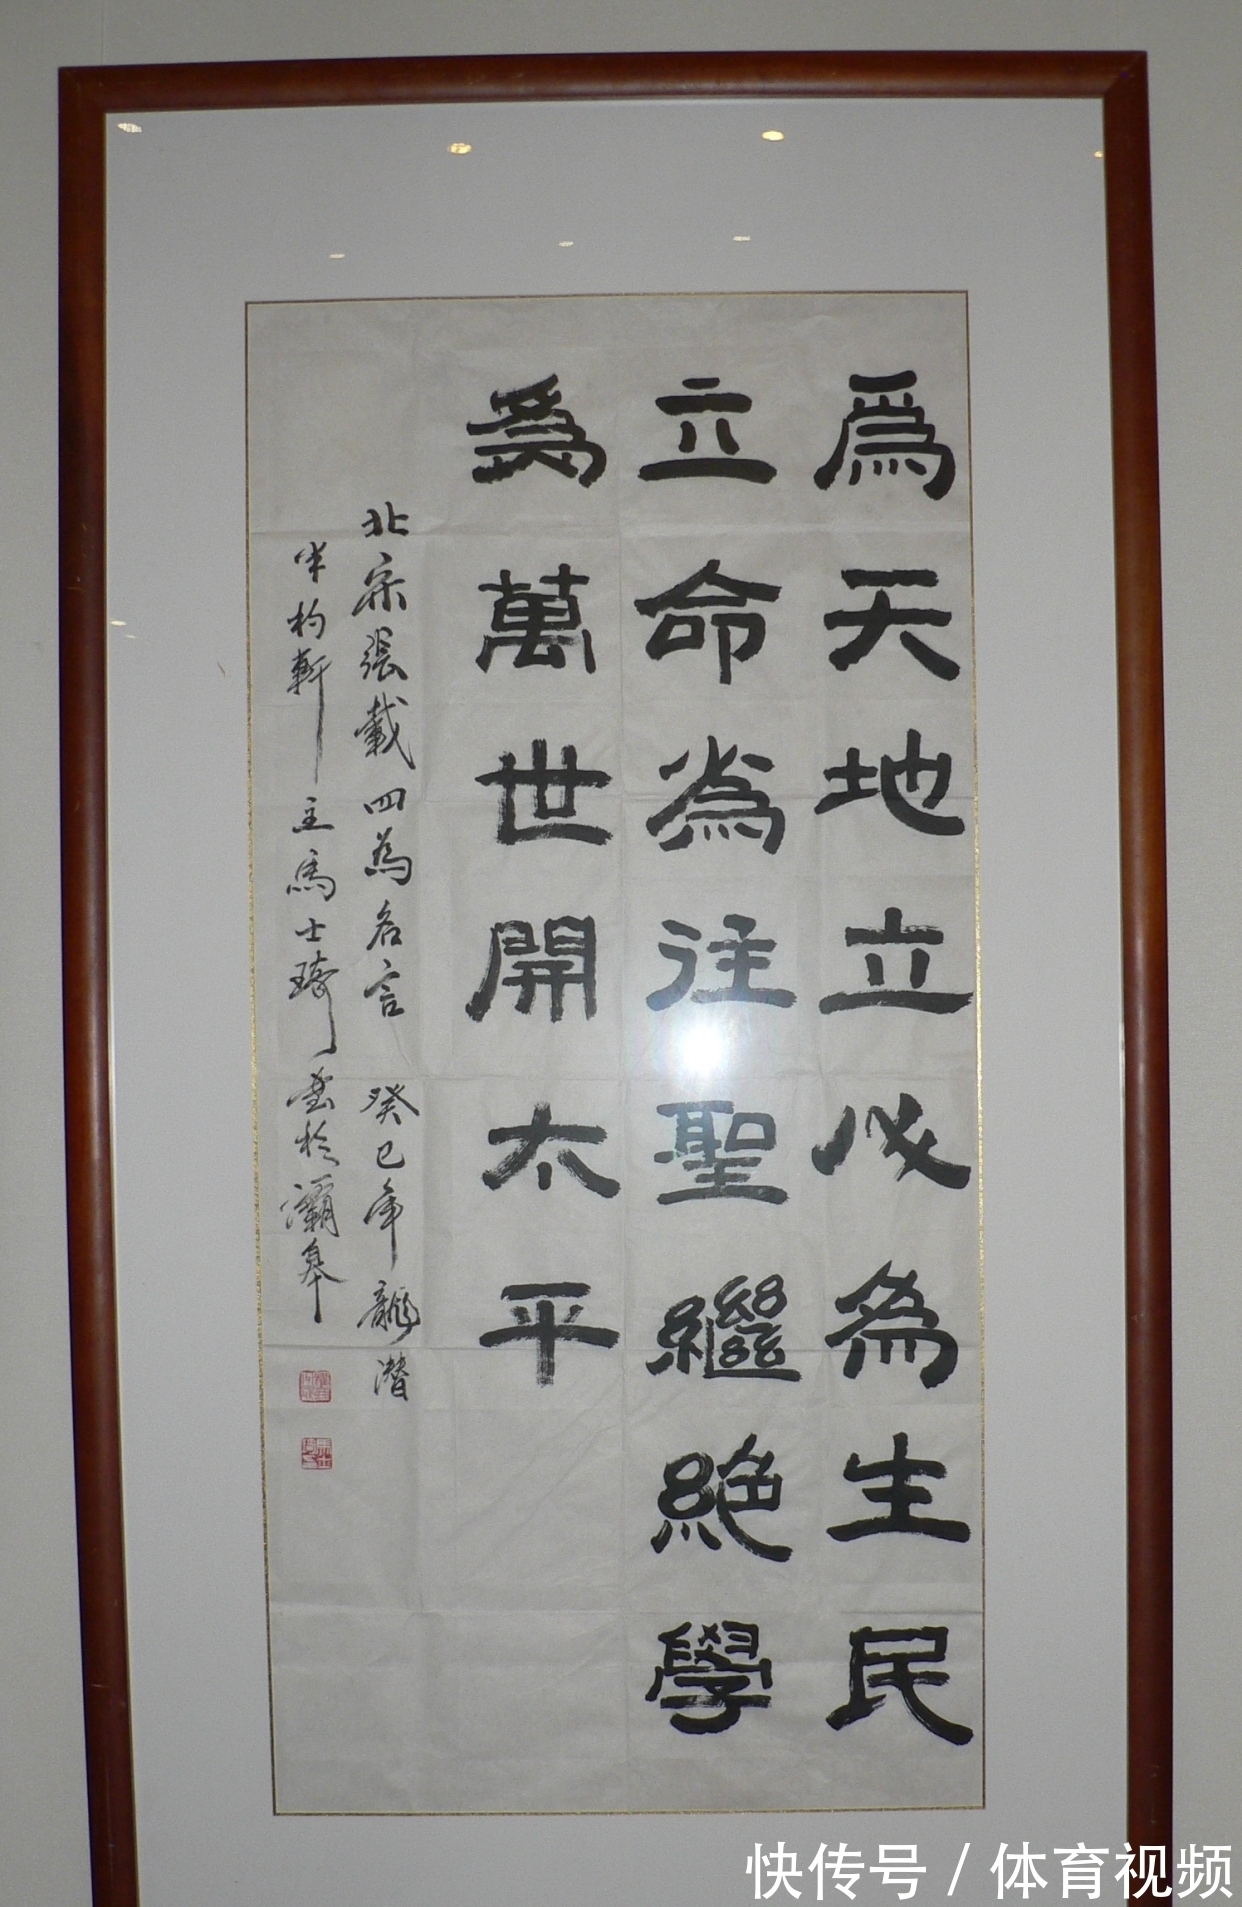 爲天地立心爲生民
立命爲往聖繼絶學
爲萬世開太平
北宋張載四爲名言 癸巳年龍潛
半杓軒主馬士琦書於灞皋
快传号/体育视频